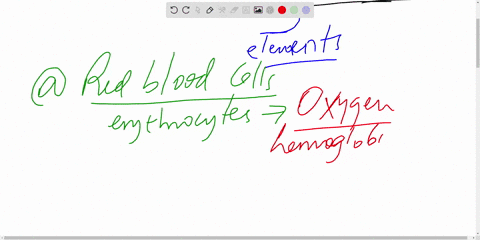 elements
@ Red blood cells
erythrocytes → Oxygen
hemoglobi